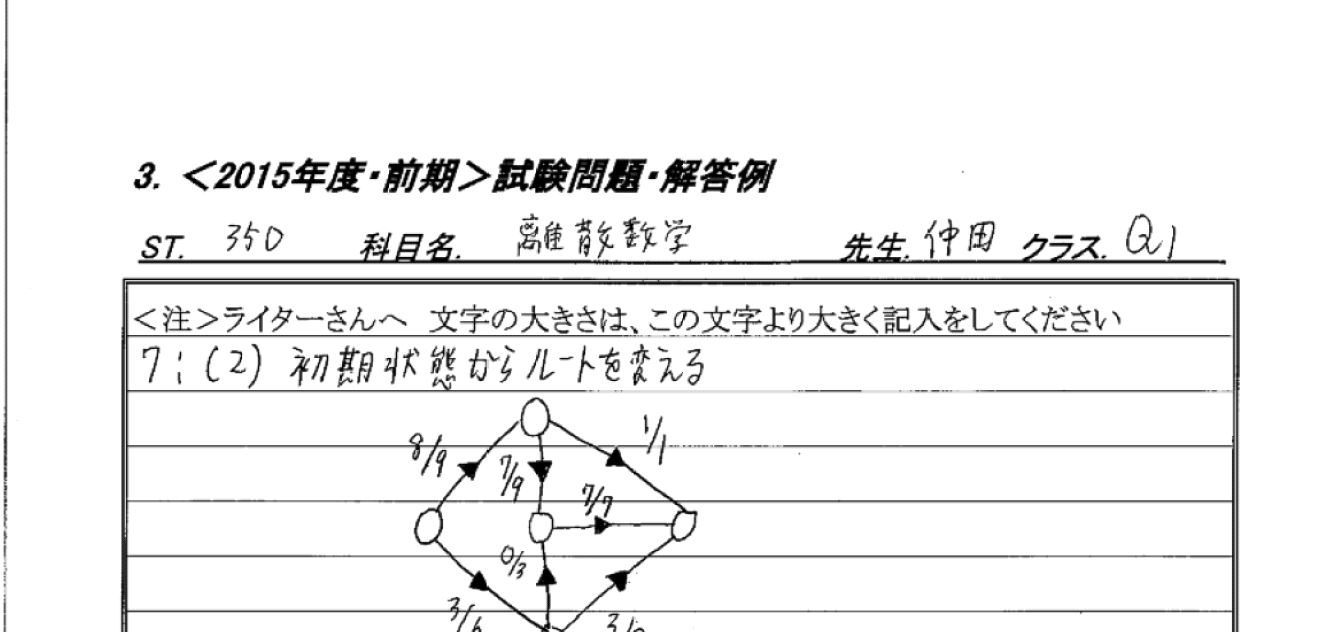 3. <2015年度・前期>試験問題・解答例
ST. 350 科目名. 離散数学 先生. 仲田 クラス. Q1
<注>ライターさんへ 文字の大きさは、この文字より大きく記入をしてください
7:(2) 初期状態からルートを変える
8/9 1/1
7/9 7/7
0/3
3/6